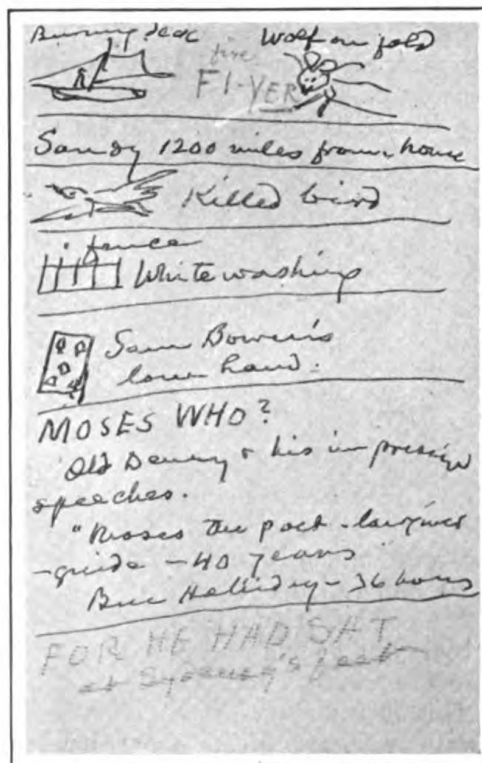 Burning deck Wolf on fold
fire
FI-YER
Sandy 1200 miles from home
Killed bird
fence
Whitewashing
Sam Bowen's
lone hand.
MOSES WHO?
Old Denny & his impressive
speeches.
"Moses the poet - lawgiver
-guide - 40 years
Ben Holliday - 36 hours
FOR HE HAD SAT
at Sydney's feet